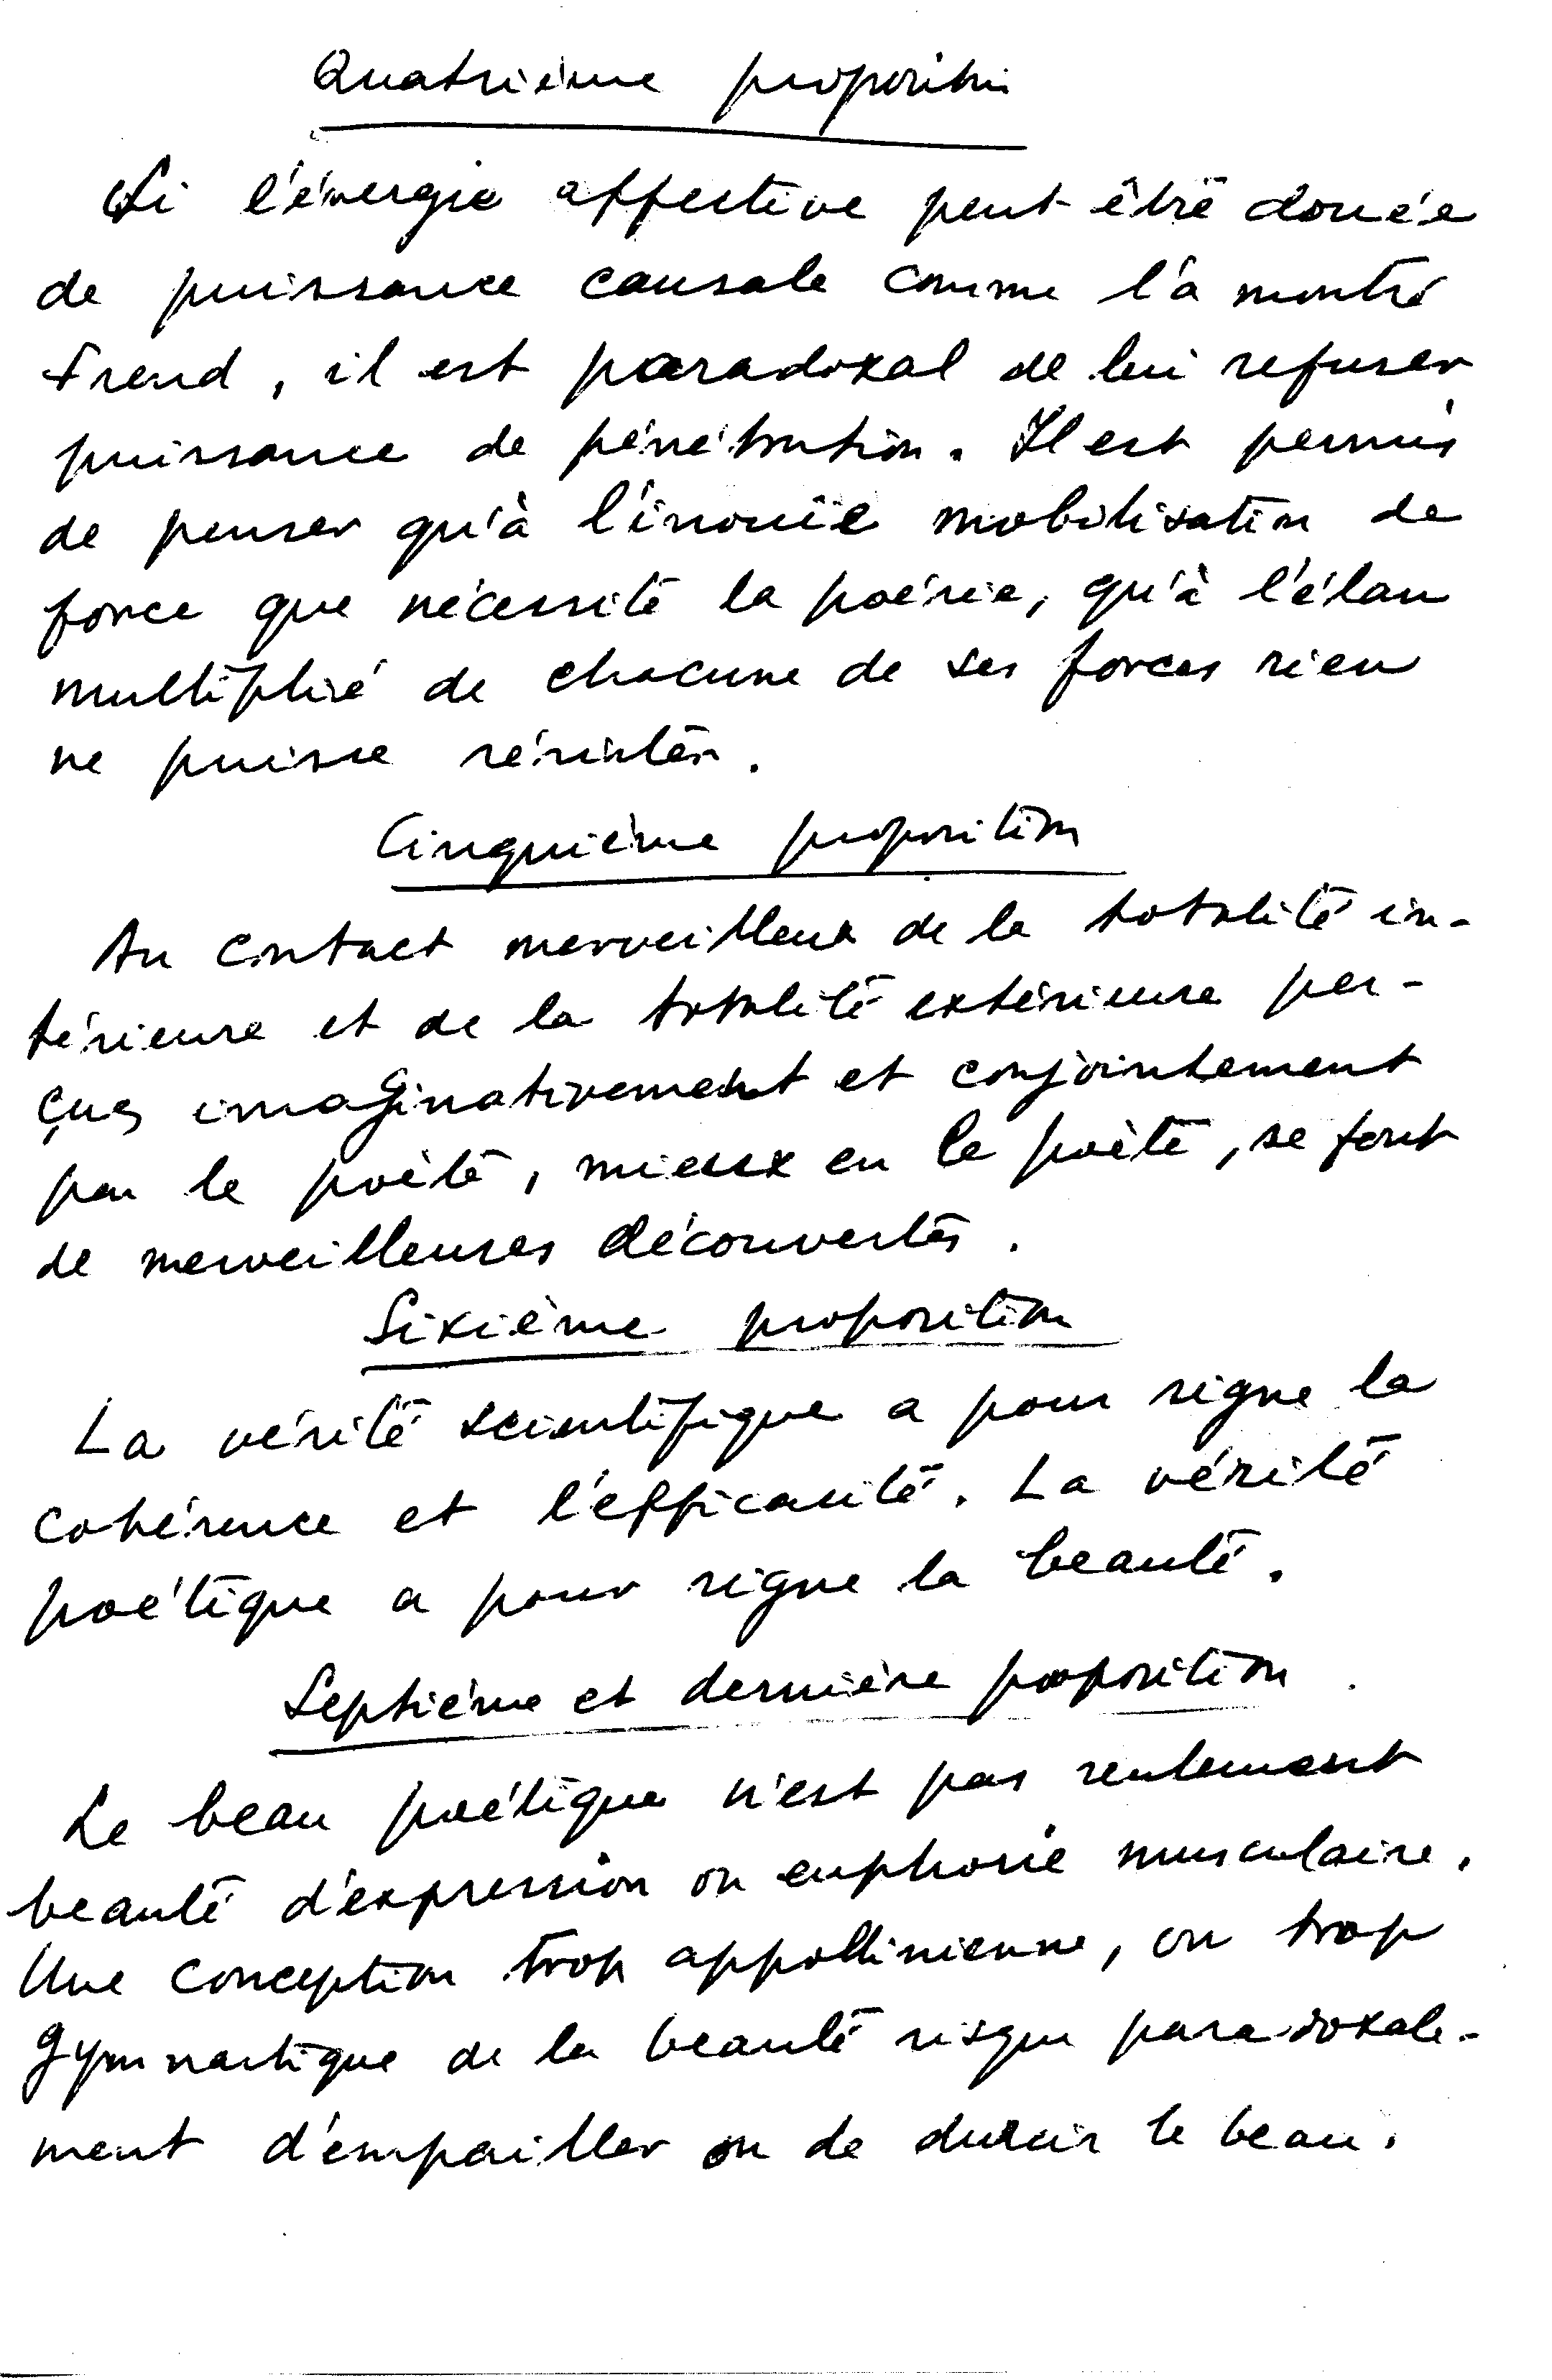 Quatrième proposition
Si l'énergie affective peut être douée
de puissance causale comme l'a montré
Freud, il est paradoxal de lui refuser
puissance de pénétration. Il est permis
de penser qu'à l'inouïe mobilisation de
force que nécessité la poésie, qu'à l'élan
multiplié de chacune de ses forces rien
ne puisse résister.
Cinquième proposition
Au contact merveilleux de la totalité in-
térieure et de la totalité extérieure per-
çues imaginativement et conjointement
par le poète, mieux en le poète, se font
de merveilleuses découvertes.
Sixième proposition
La vérité scientifique a pour signe la
cohérence et l'efficacité. La vérité
poétique a pour signe la beauté.
Septième et dernière proposition.
Le beau poétique n'est pas seulement
beauté d'expression ou euphorie musculaire.
Une conception trop appollinienne, ou trop
gymnastique de la beauté risque paradoxale-
ment d'empailler ou de durcir le beau.